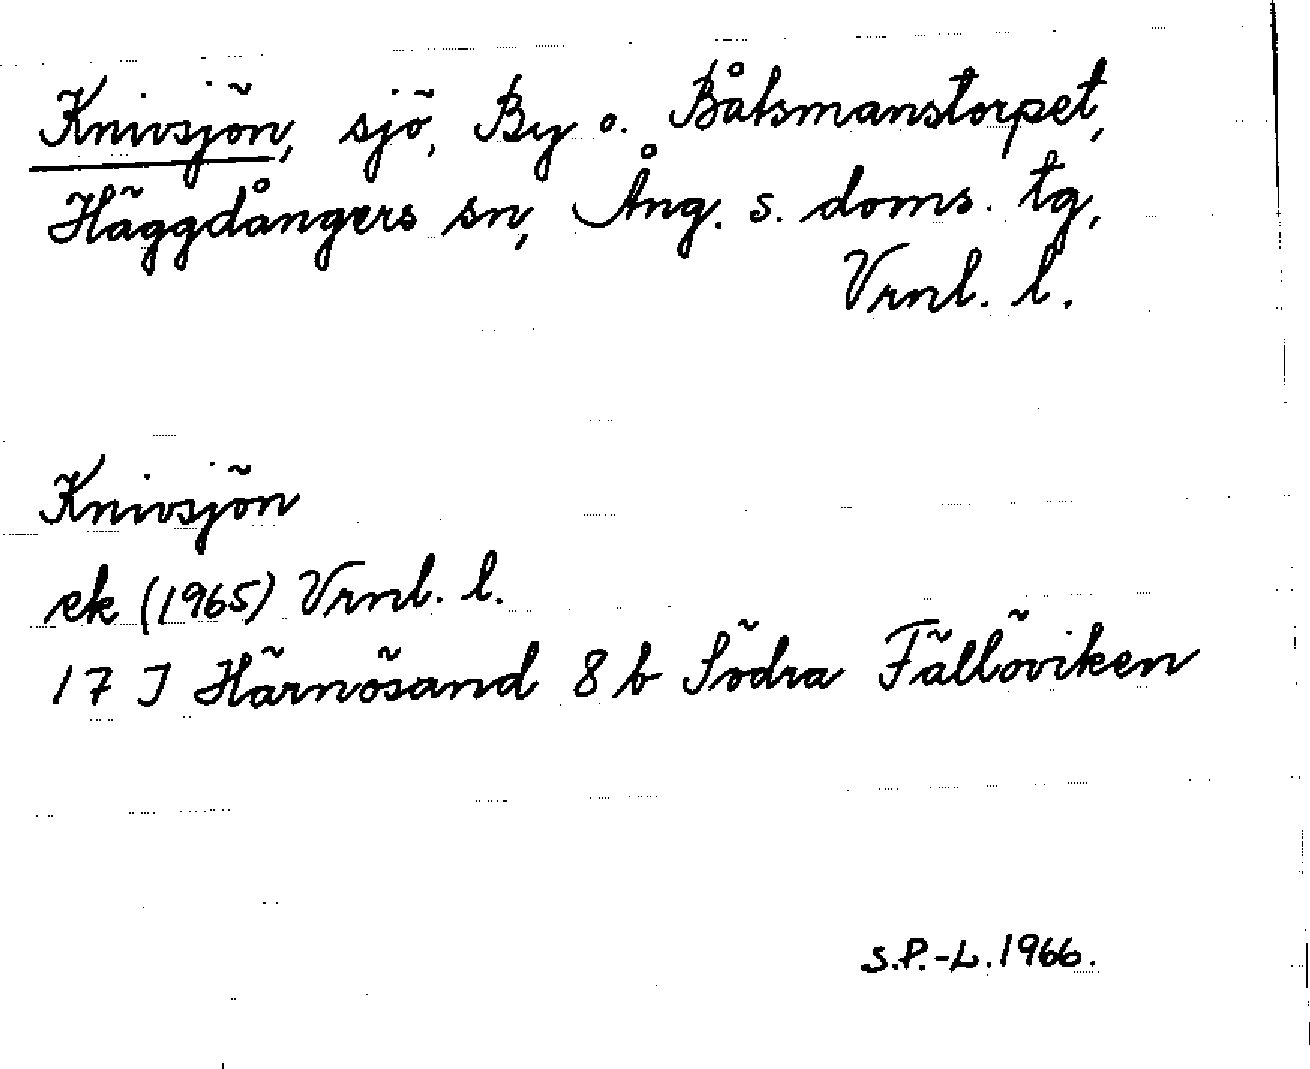 Knivsjön, sjö, By o. Båtsmanstorpet,
Häggdångers sn, Ång. s. doms. tg,
Vrnl. l.
Knivsjön
ek (1965) Vrnl. l.
17 I Härnösand 8 b Södra Fällöviken
S.P.-L. 1966.